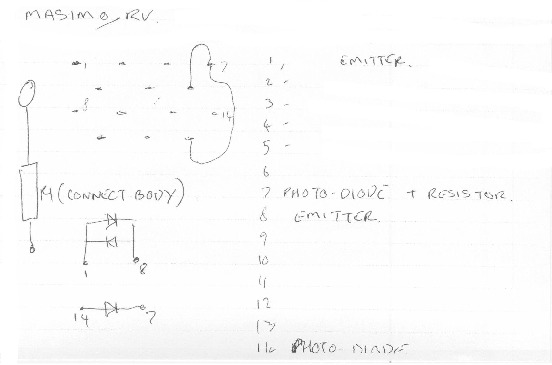 MASIMO/RV.
1 7
8 14
R1 (CONNECT BODY)
1 8
14 7
1, EMITTER.
2 -
3 -
4 -
5 -
6
7 PHOTO-DIODE + RESISTOR.
8 EMITTER.
9
10
11
12
13
14 PHOTO-DIODE